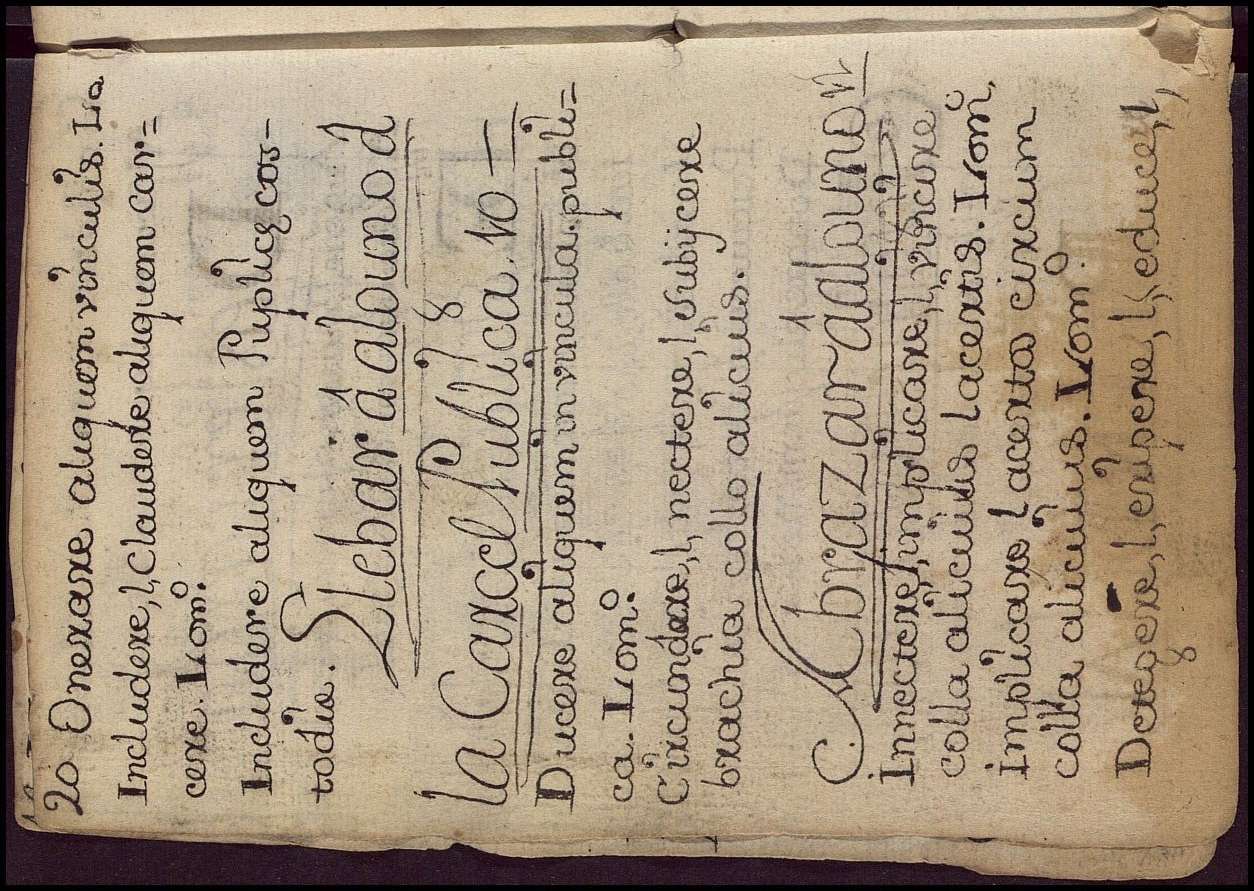 20 Onerare aliquem vinculis. L a
Includere, l, Claudere aliquem car=
cere. L iom.
Includere aliquem Puplicę cos-
todie.
Llebar á alouno d
la Carcel Publica. ro -
Ducere aliquem in vincula. publi=
ca. L iom.
Circundare, l, nectere, l, subijcere
brachia collo alicuius.
Abrazar ádlouno n
Innectere, l, implicare, l, vincire
colla alicuius lacertis. L iom,
Implicare l acertos circum
colla alicuius. L iom.
Detegere, l, eripere, l, educe, l,